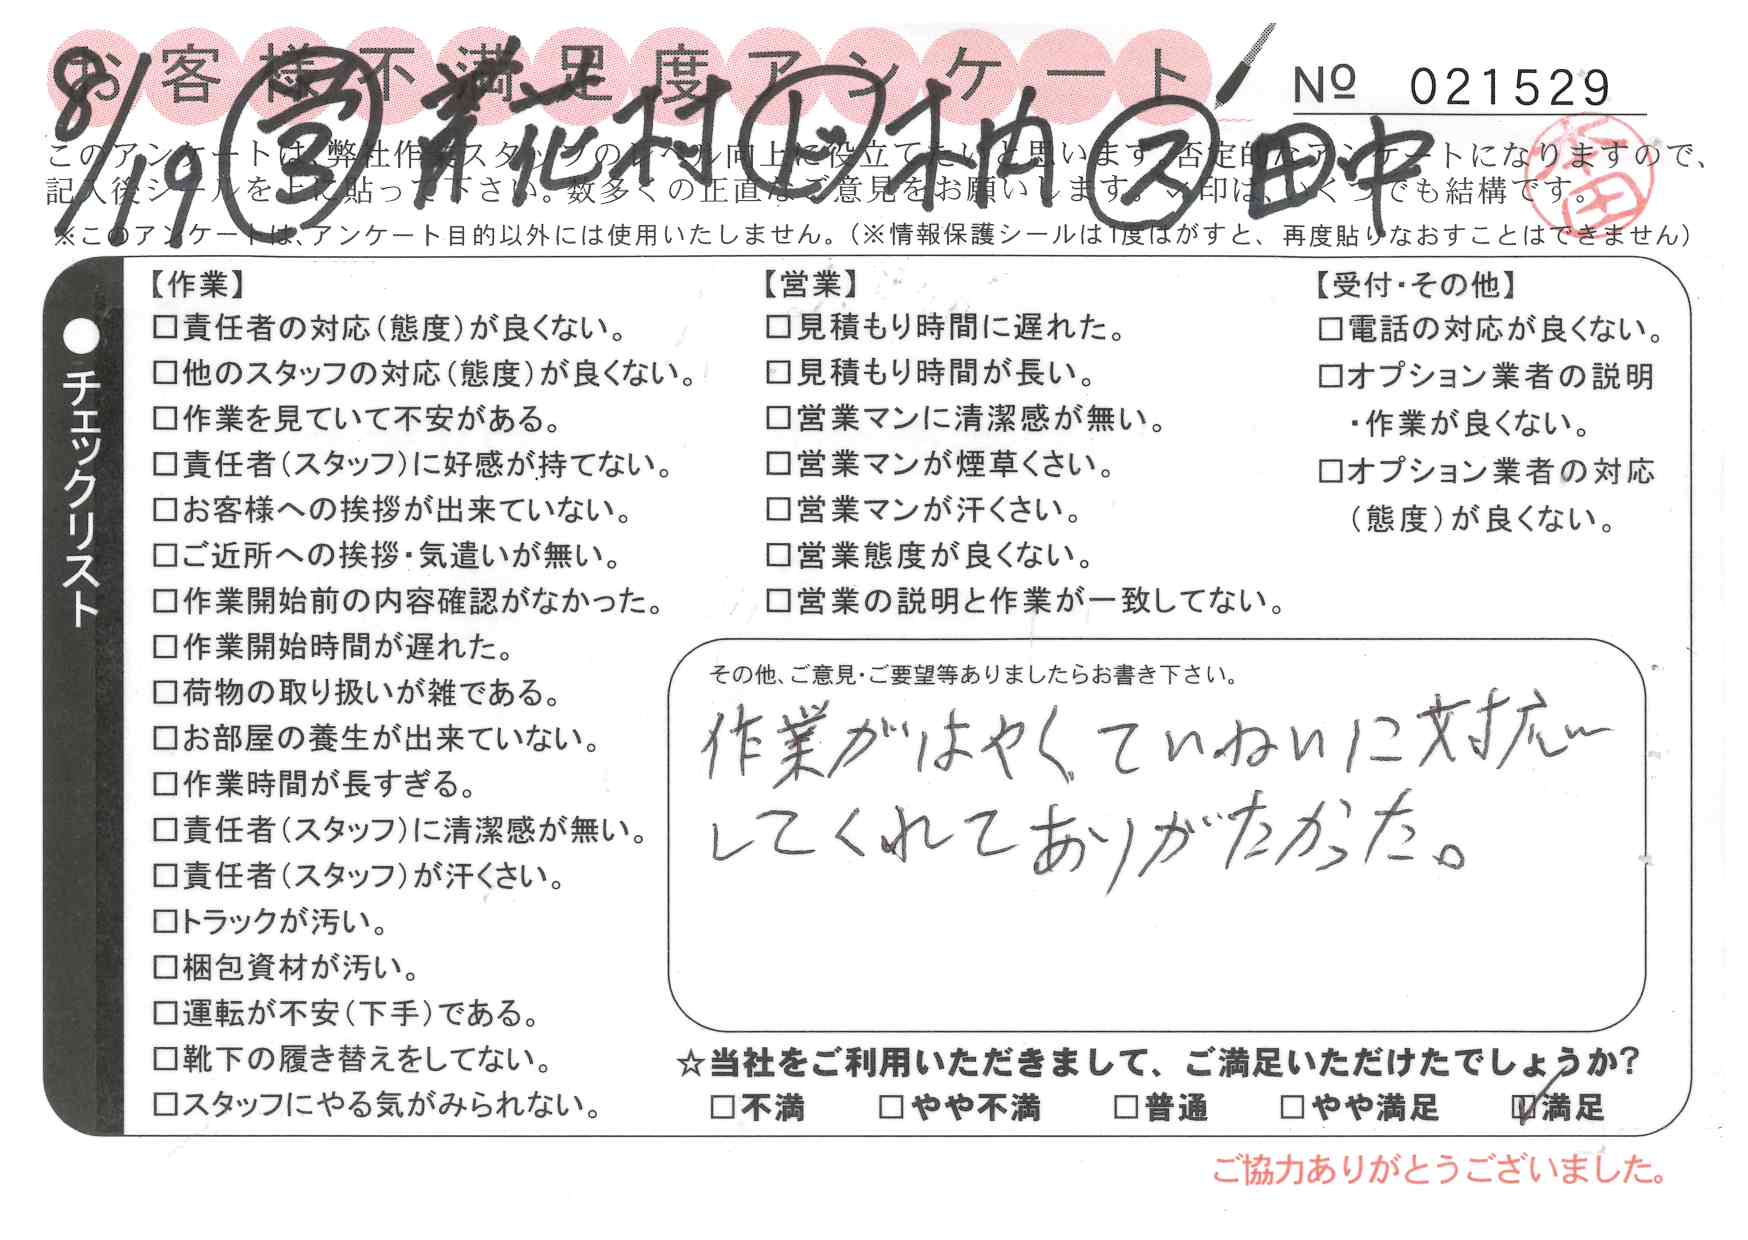 お客様不満足度アンケート
№ 021529
8/19 花村 柚 ス 田中
このアンケートは、弊社作業スタッフのレベル向上に役立てたいと思います。否定的なアンケートになりますので、
記入後シールを上に貼って下さい。数多くの正直なご意見をお願いします。✓印は、いくつでも結構です。
※このアンケートは、アンケート目的以外には使用いたしません。(※情報保護シールは1度はがすと、再度貼りなおすことはできません)
●チェックリスト
【作業】
□責任者の対応(態度)が良くない。
□他のスタッフの対応(態度)が良くない。
□作業を見ていて不安がある。
□責任者(スタッフ)に好感が持てない。
□お客様への挨拶が出来ていない。
□ご近所への挨拶・気遣いが無い。
□作業開始前の内容確認がなかった。
□作業開始時間が遅れた。
□荷物の取り扱いが雑である。
□お部屋の養生が出来ていない。
□作業時間が長すぎる。
□責任者(スタッフ)に清潔感が無い。
□責任者(スタッフ)が汗くさい。
□トラックが汚い。
□梱包資材が汚い。
□運転が不安(下手)である。
□靴下の履き替えをしてない。
□スタッフにやる気がみられない。
【営業】
□見積もり時間に遅れた。
□見積もり時間が長い。
□営業マンに清潔感が無い。
□営業マンが煙草くさい。
□営業マンが汗くさい。
□営業態度が良くない。
□営業の説明と作業が一致してない。
【受付・その他】
□電話の対応が良くない。
□オプション業者の説明
・作業が良くない。
□オプション業者の対応
(態度)が良くない。
その他、ご意見・ご要望等ありましたらお書き下さい。
作業がはやく、ていねいに対応
してくれてありがたかった。
☆当社をご利用いただきまして、ご満足いただけたでしょうか?
□不満 □やや不満 □普通 □やや満足 ☑満足
ご協力ありがとうございました。